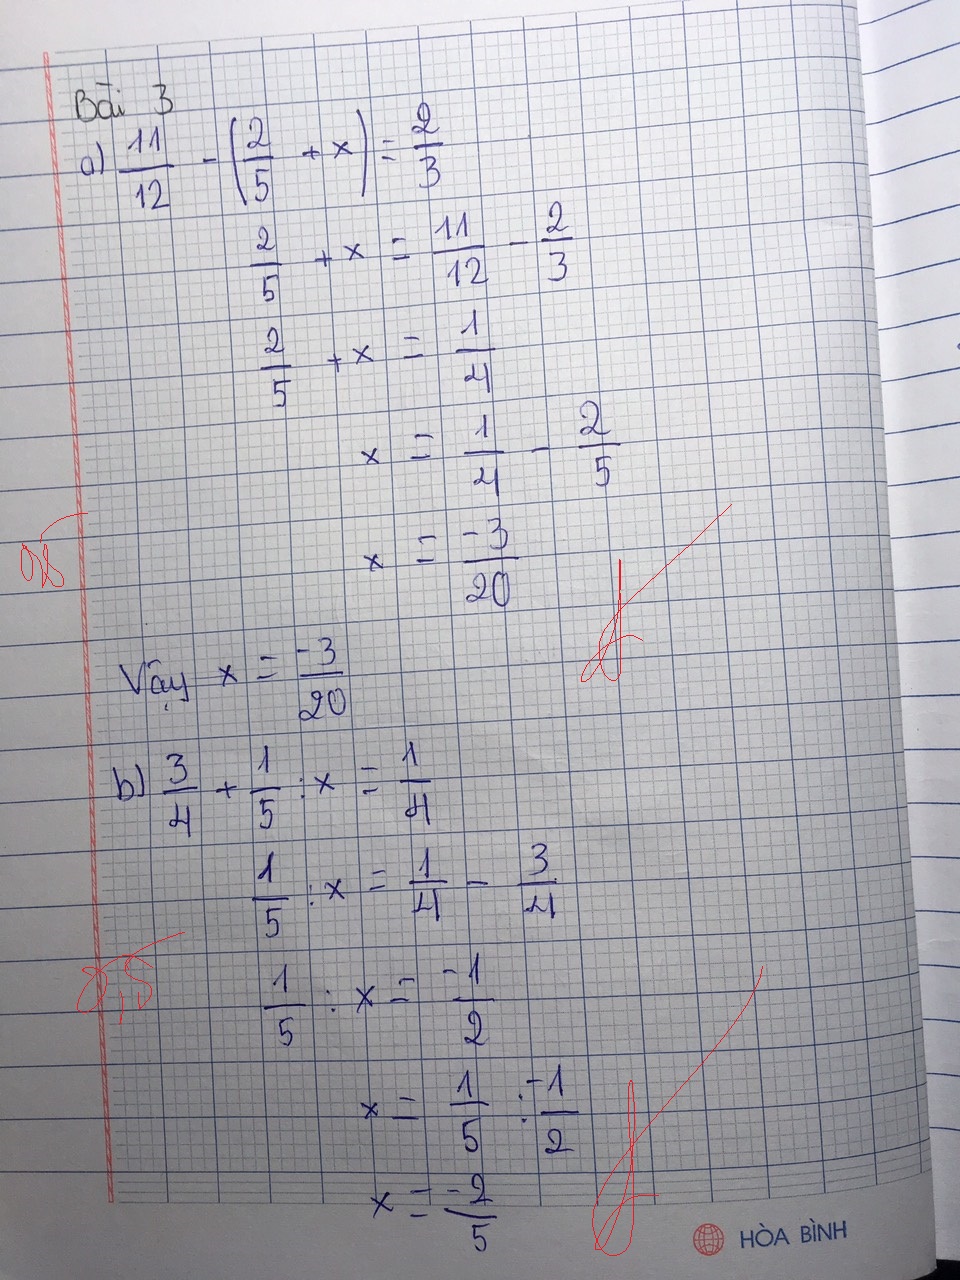 Bài 3
a) 11/12 - (2/5 + x) = 2/3
2/5 + x = 11/12 - 2/3
2/5 + x = 1/4
x = 1/4 - 2/5
x = -3/20
Vậy x = -3/20
b) 3/4 + 1/5 : x = 1/4
1/5 : x = 1/4 - 3/4
0,5
1/5 : x = -1/2
x = 1/5 : -1/2
x = -2/5
HÒA BÌNH